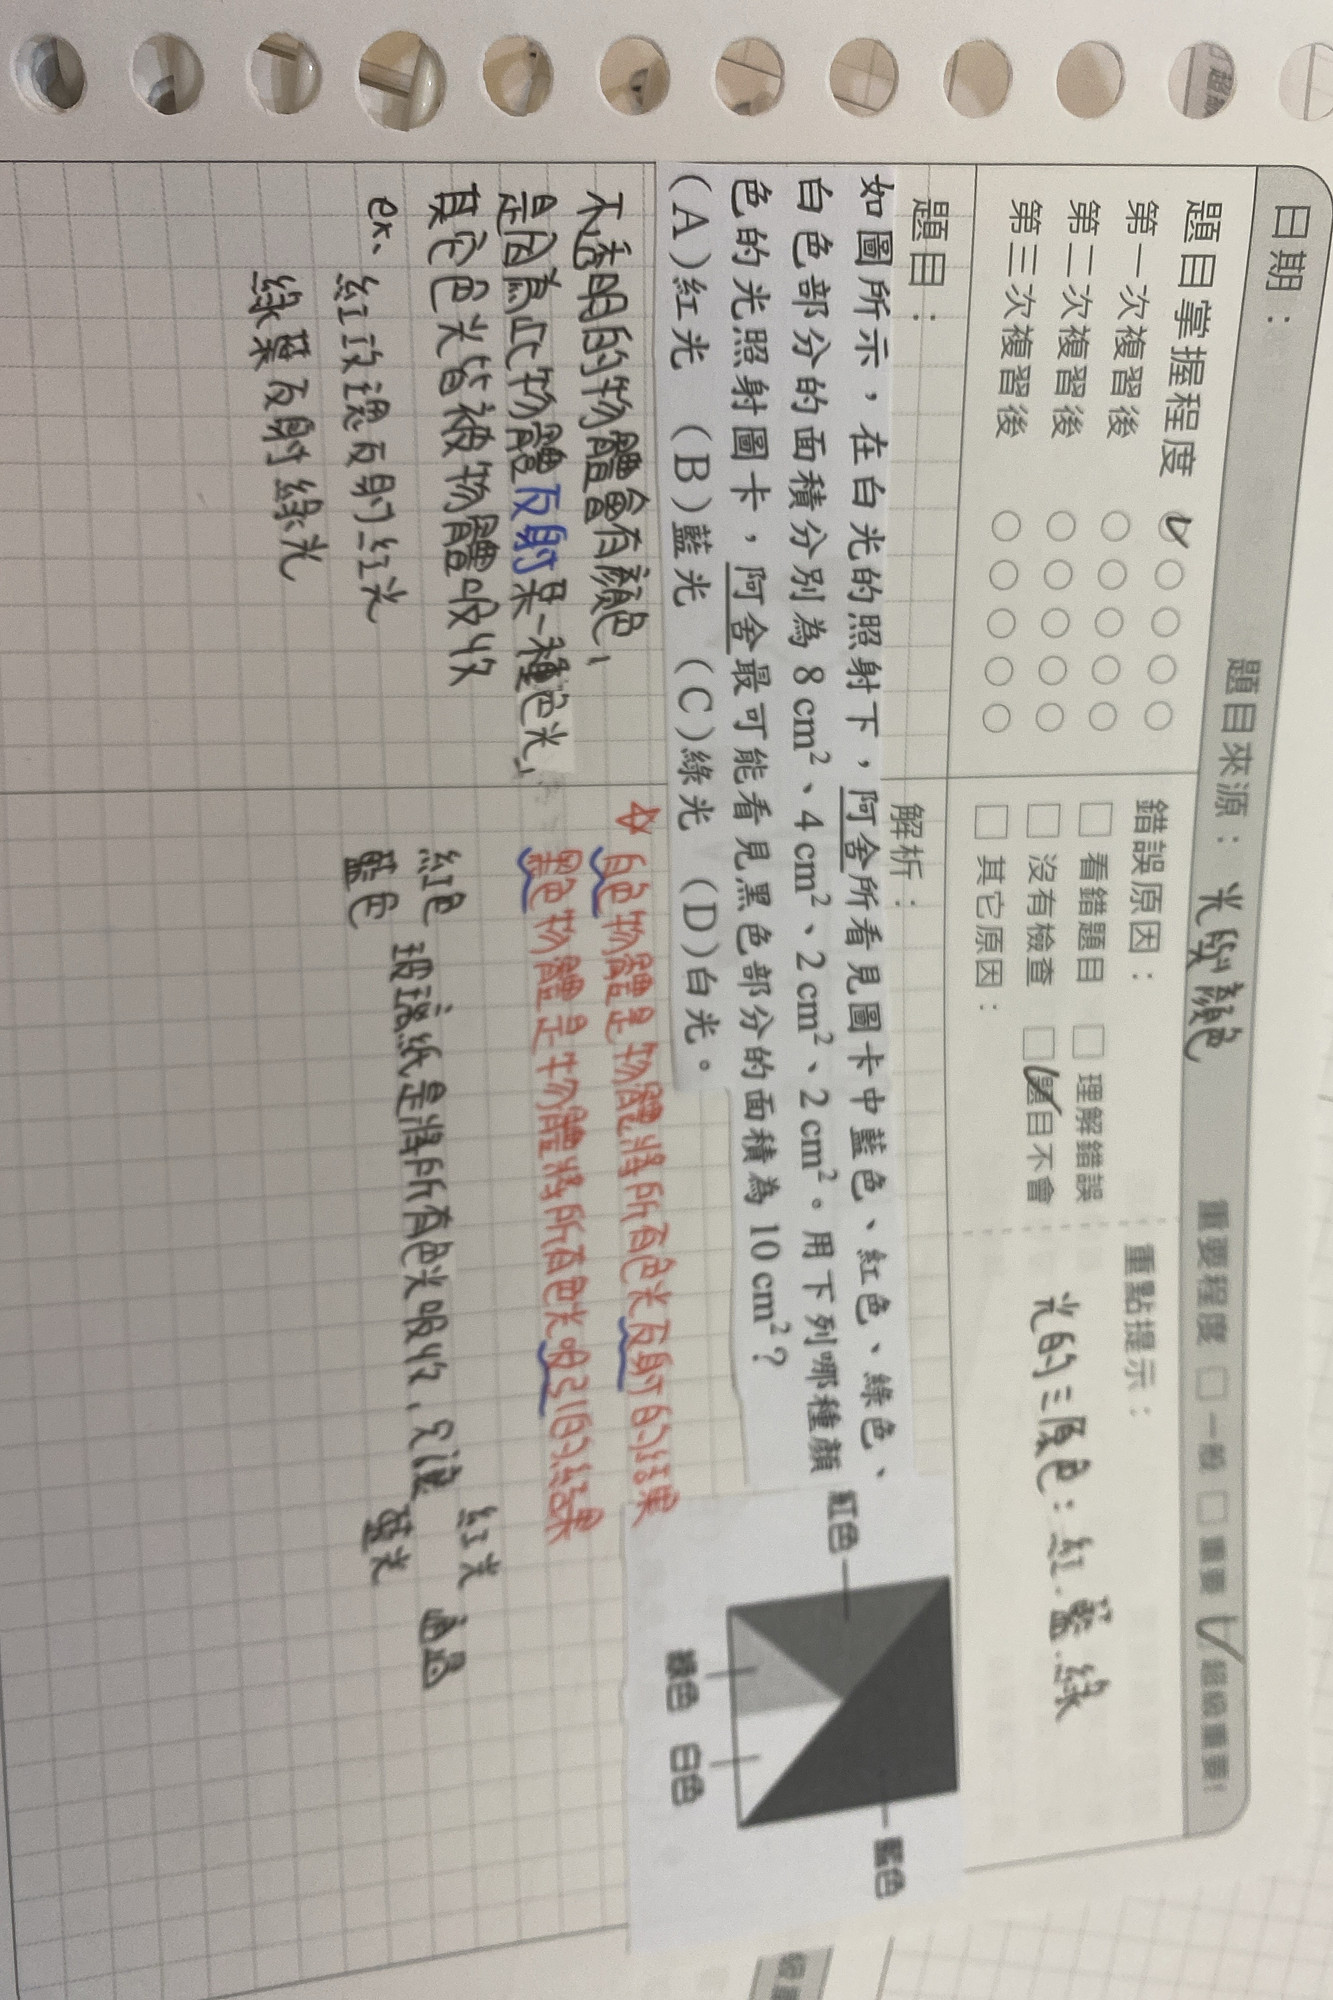 日期：
題目來源： 光與顏色
重要程度 □一般 □重要 ☑超級重要！
題目掌握程度
第一次複習後
第二次複習後
第三次複習後
錯誤原因：
□ 看錯題目 □ 理解錯誤
□ 沒有檢查 ☑ 題目不會
□ 其它原因：
重點提示：
光的三原色：紅.藍.綠
題目：
解析：
如圖所示，在白光的照射下，阿舍所看見圖卡中藍色、紅色、綠色、
白色部分的面積分別為 8 cm²、4 cm²、2 cm²、2 cm²。用下列哪種顏
色的光照射圖卡，阿舍最可能看見黑色部分的面積為 10 cm²？
(A)紅光 (B)藍光 (C)綠光 (D)白光。
紅色
藍色
綠色 白色
不透明的物體會有顏色，
是因為此物體反射某一種色光，
其它色光皆被物體吸收
ex、紅玫瑰反射紅光
綠葉反射綠光
☆ 白色物體是物體將所有色光反射的結果
黑色物體是物體將所有色光吸引的結果
紅色
藍色
玻璃紙是將所有色光吸收，只讓
紅光
藍光
通過